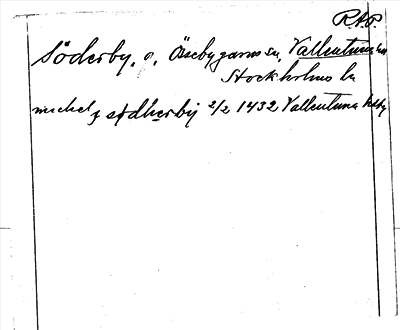 R.A.P.
Söderby, o, Össebygarns sn, Vallentuna hd
Stockholms ln
michel j södherby 2/2 1432 Vallentuna hsby